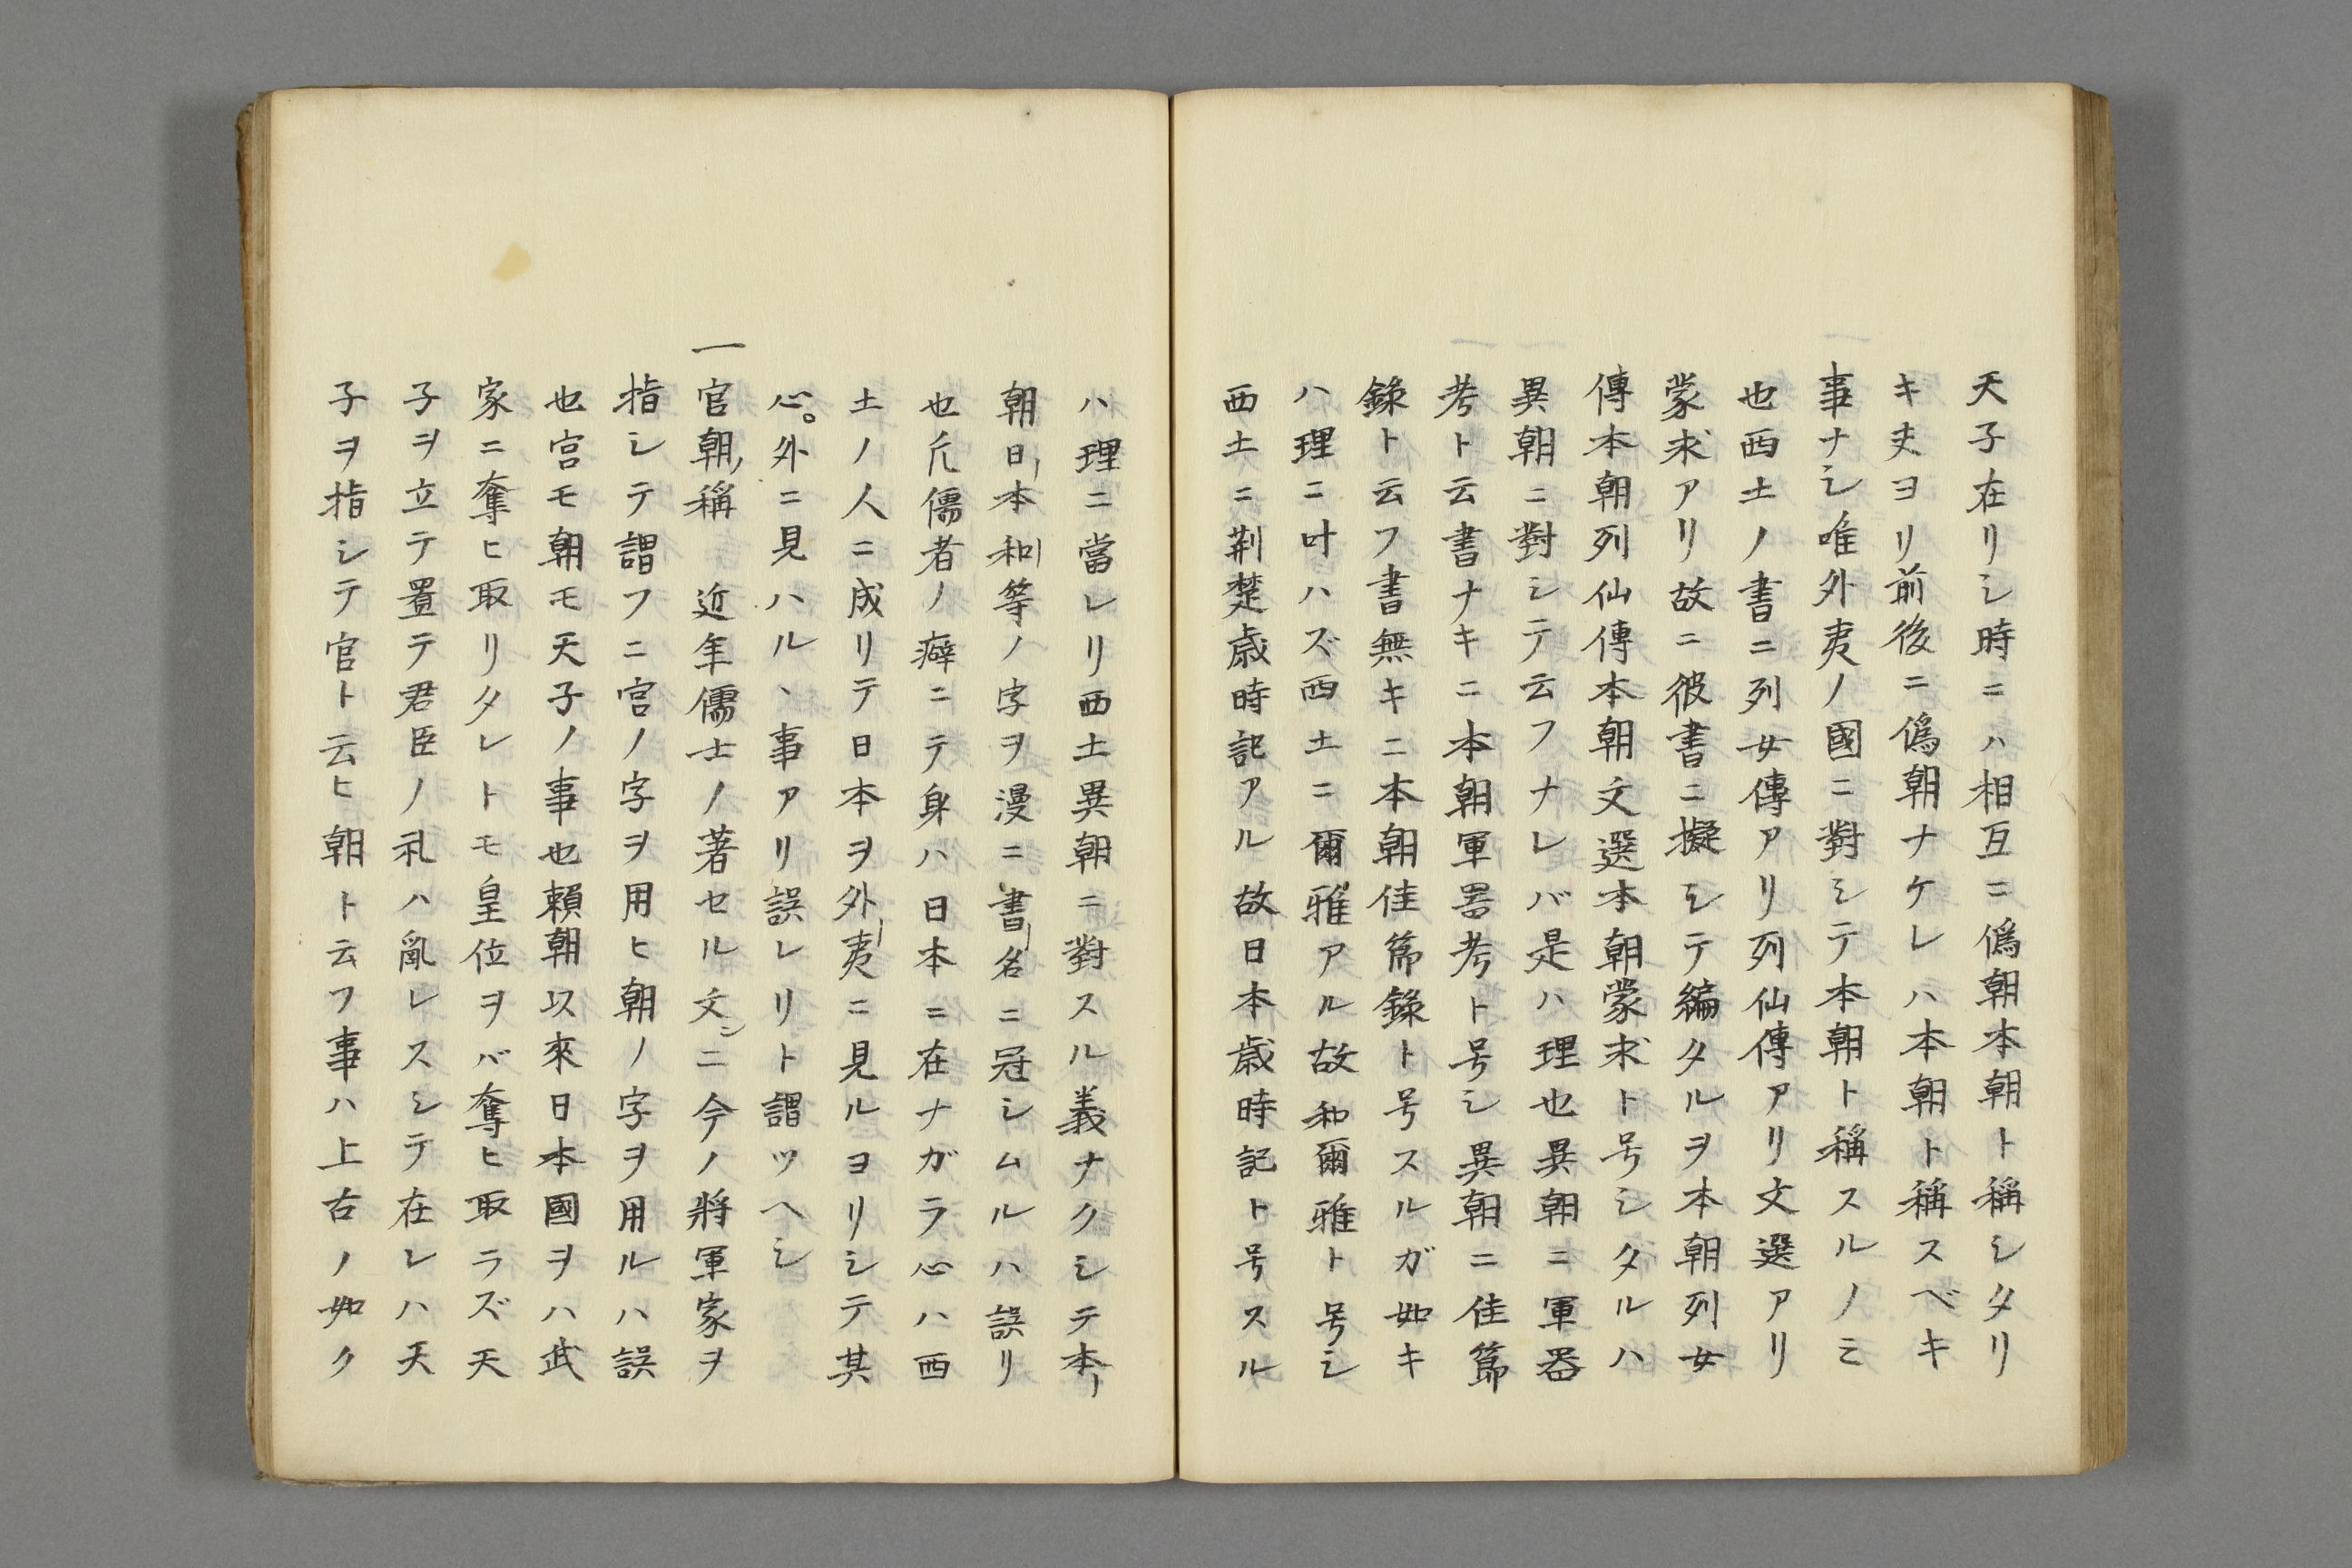 天子在リシ時ニハ相互ニ偽朝本朝ト稱シタリ
キ夫ヨリ前後ニ偽朝ナケレハ本朝ト稱スベキ
事ナシ唯外夷ノ國ニ對シテ本朝ト稱スルノミ
也西土ノ書ニ列女傳アリ列仙傳アリ文選アリ
蒙求アリ故ニ彼書ニ擬シテ編タルヲ本朝列女
傳本朝列仙傳本朝文選本朝蒙求ト号シタルハ
異朝ニ對シテ云フナレバ是ハ理也異朝ニ軍器
考ト云書ナキニ本朝軍器考ト号シ異朝ニ佳節
錄ト云フ書無キニ本朝佳節錄ト号スルガ如キ
ハ理ニ叶ハズ西土ニ爾雅アル故和爾雅ト号シ
西土ニ荆楚歳時記アル故日本歳時記ト号スル
ハ理ニ當レリ西土異朝ニ對スル義ナクシテ本
朝日本和等ノ字ヲ漫ニ書名ニ冠シムルハ誤リ
也凢儒者ノ癖ニテ身ハ日本ニ在ナガラ心ハ西
土ノ人ニ成リテ日本ヲ外夷ニ見ルヨリシテ其
心。外ニ見ハルヽ事アリ誤レリト謂ツヘシ
一官朝ノ稱 近年儒士ノ著セル文ニ今ノ將軍家ヲ
指シテ謂フニ宮ノ字ヲ用ヒ朝ノ字ヲ用ルハ誤
也宮モ朝モ天子ノ事也賴朝以來日本國ヲハ武
家ニ奪ヒ取リタレトモ皇位ヲバ奪ヒ取ラズ天
子ヲ立テ置テ君臣ノ礼ハ亂レスシテ在レハ天
子ヲ指シテ官ト云ヒ朝ト云フ事ハ上古ノ如ク